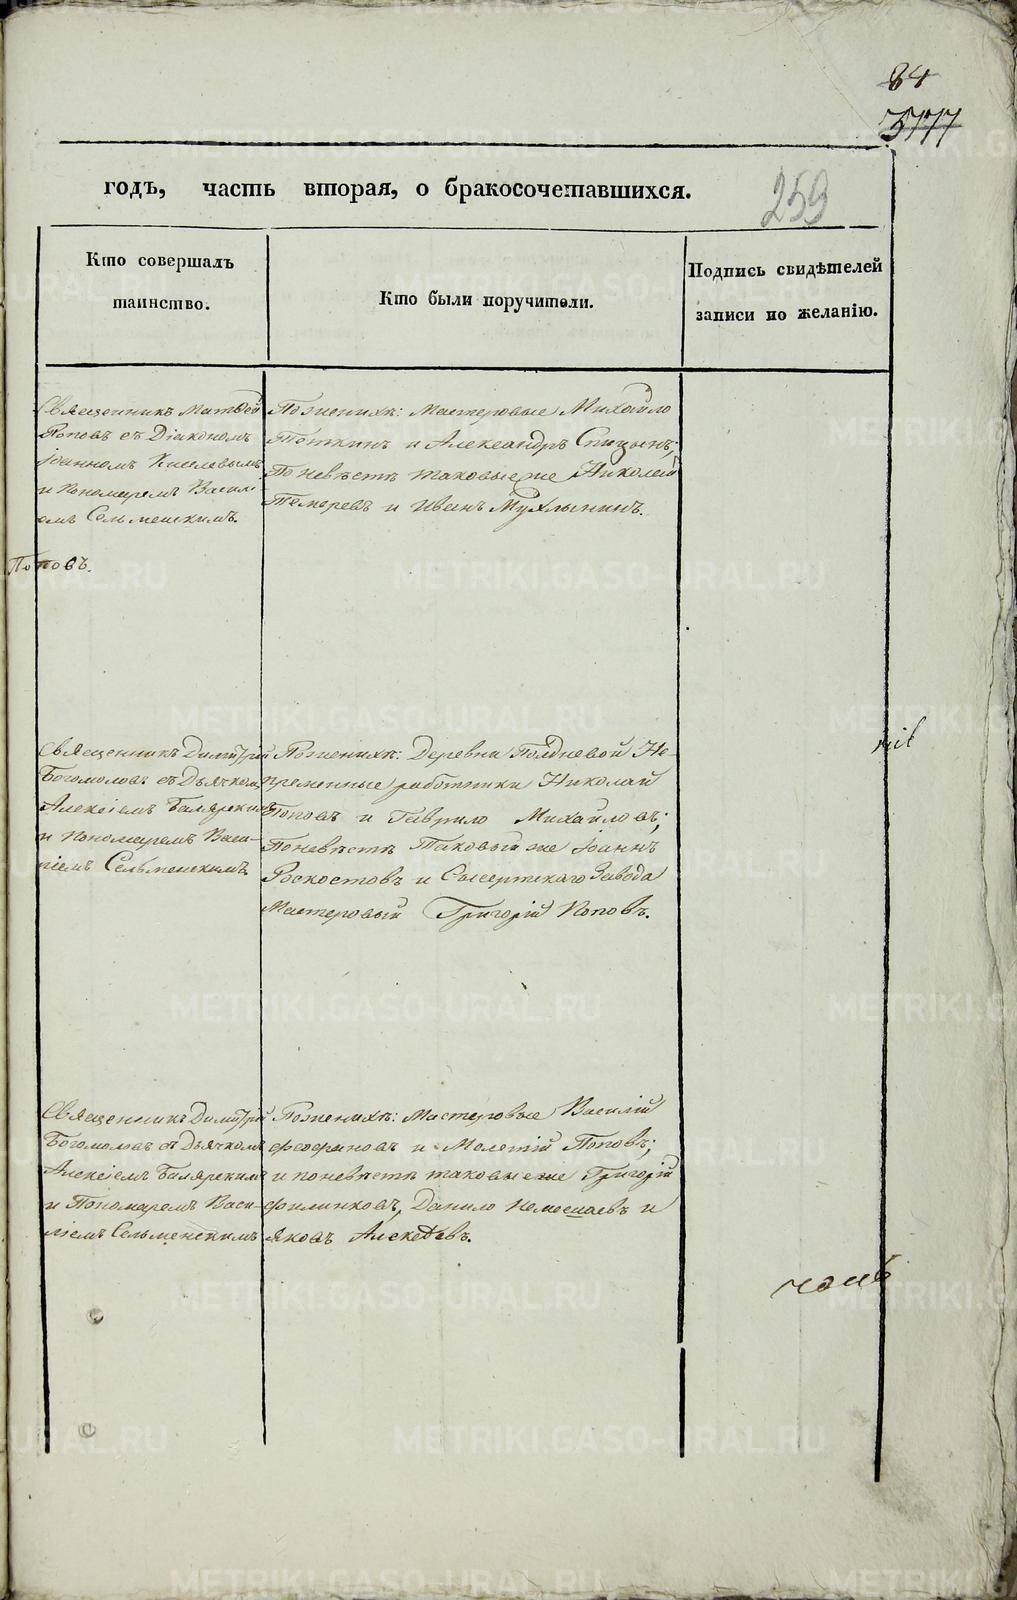 84
3777
годъ, часть вторая, о бракосочетавшихся.
259
Кто совершалъ
таинство.
Кто были поручители.
Подпись свидѣтелей
записи по желанію.
Священникъ Матѳей
Поповъ съ Діакономъ
Іоанномъ Киселевымъ
и Пономаремъ Васил-
емъ Сельменскимъ.
Поповъ.
Поженихѣ: Мастеровые Михайло
и Александръ Спицынъ;
Поневѣстѣ таковые же Николай
и Иванъ Мухлынинъ.
Священникъ Димитрій
Богомоловъ съ Дьячкомъ
Алексіемъ Баляркинымъ
и Пономаремъ Васи-
ліемъ Сельменскимъ
Поженихѣ: Деревни Полдневой Не-
пременные работники Николай
Поповъ и Гаврило Михайловъ;
Поневѣстѣ Таковый же Іоаннъ
Роскостовъ и Сысертскаго Завода
Мастеровый Григорій Поповъ.
Священникъ Димитрій
Богомоловъ съ Дьячкомъ
Алексіемъ
и Пономаремъ Васи-
ліемъ Сельменскимъ
Поженихѣ: Мастеровые Василій
Феофановъ и Мелетій Поповъ;
и поневѣстѣ таковые же Григорій
Филинковъ, Данило и
Яковъ
METRIKI.GASO-URAL.RU